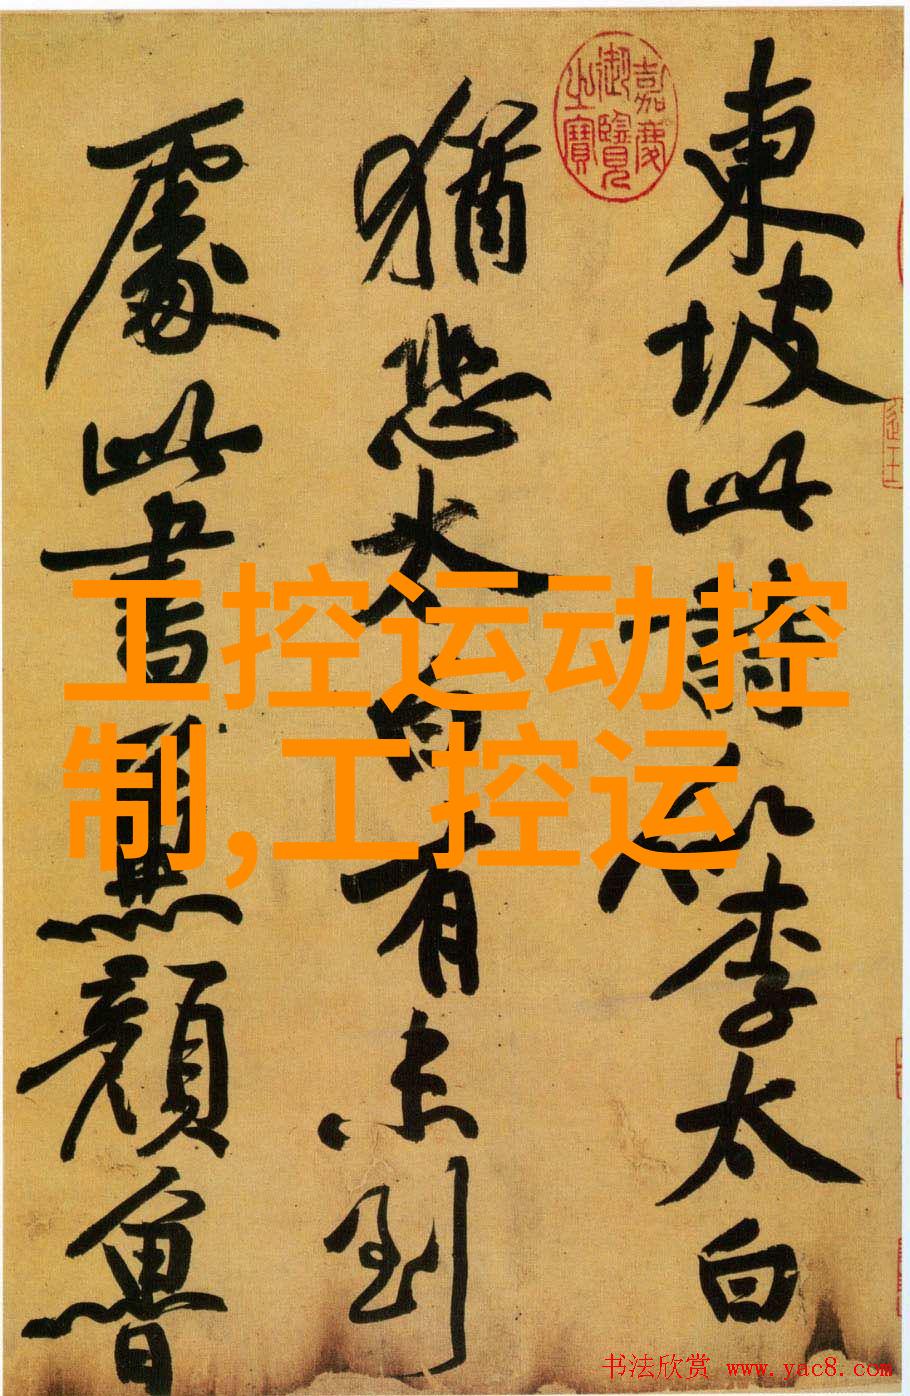 嘉慶
御覽
之寶
東坡此詩似李太白
猶恐太白有未到
處此書兼顏魯
工控运动控
制,工控运
书法欣赏 www.yac8.com